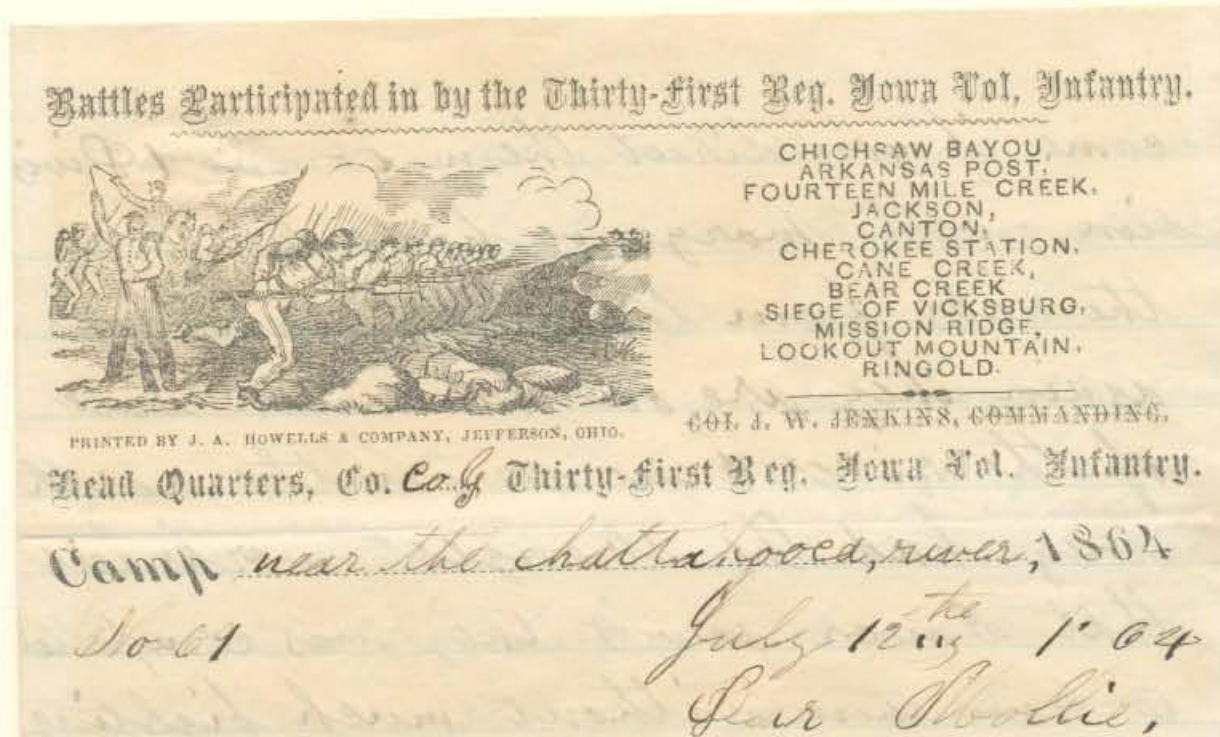 Battles Participated in by the Thirty-First Reg. Iowa Vol, Infantry.
CHICHSAW BAYOU,
ARKANSAS POST,
FOURTEEN MILE CREEK,
JACKSON,
CANTON,
CHEROKEE STATION,
CANE CREEK,
BEAR CREEK
SIEGE OF VICKSBURG,
MISSION RIDGE,
LOOKOUT MOUNTAIN,
RINGOLD.
COL J. W. JENKINS, COMMANDING.
PRINTED BY J. A. HOWELLS & COMPANY, JEFFERSON, OHIO.
Head Quarters, Co. Co. G Thirty-First Reg. Iowa Vol. Infantry.
Camp near the chattahooca, river, 1864
No 61 July 12 the 1 64
Dear Mollie,